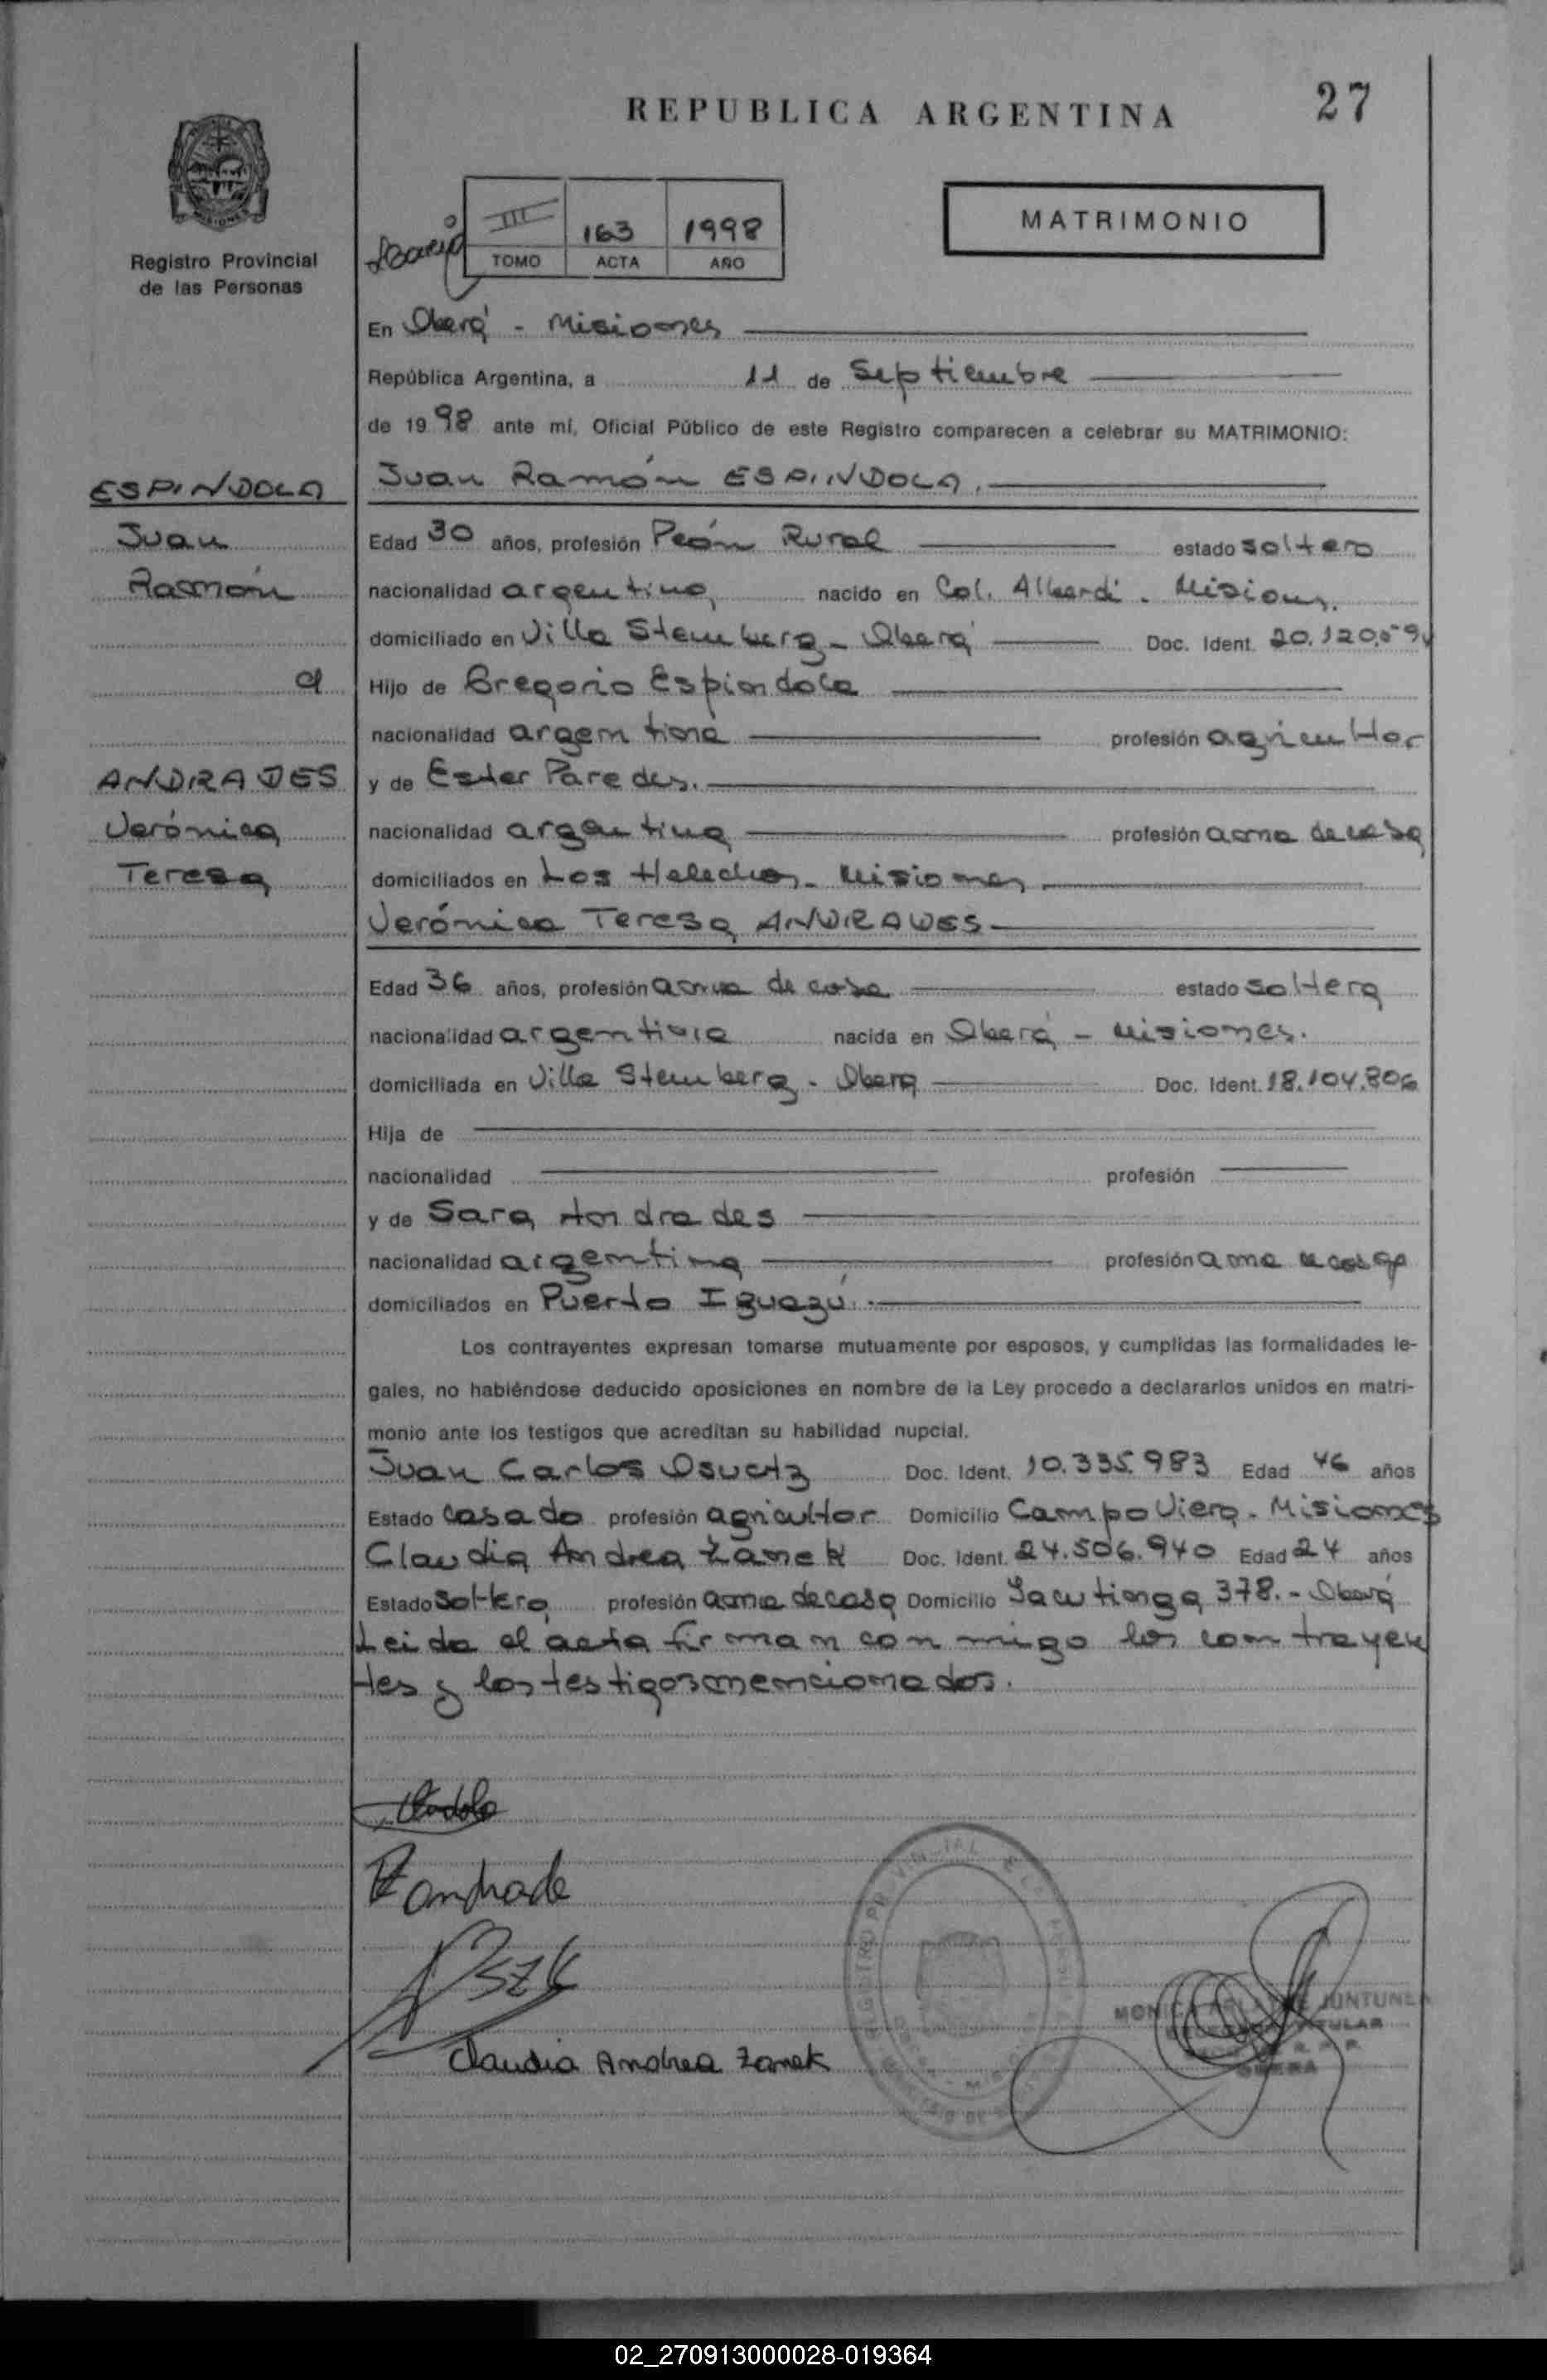 REPUBLICA ARGENTINA
27
MATRIMONIO
Registro Provincial
de las Personas
III 163 1998
TOMO ACTA AÑO
En Oberá - Misiones
República Argentina, a 11 de Septiembre
de 1998 ante mí, Oficial Público de este Registro comparecen a celebrar su MATRIMONIO:
ESPINDOLA
Juan
Ramón
a
ANDRADES
Verónica
Teresa
Juan Ramón ESPINDOLA.
Edad 30 años, profesión Peón Rural estado soltero
nacionalidad argentina nacido en Col. Alberdi - Misiones.
domiciliado en Villa Stemberg - Oberá Doc. Ident. 20.120.
Hijo de Gregorio Espindola
nacionalidad argentina profesión agricultor
y de Ester Paredes.
nacionalidad argentina profesión ama de casa
domiciliados en Los Helechos - Misiones
Verónica Teresa ANDRADES
Edad 36 años, profesión ama de casa estado soltera
nacionalidad argentina nacida en Oberá - Misiones.
domiciliada en Villa Stemberg - Oberá Doc. Ident. 18.104.806
Hija de
nacionalidad profesión
y de Sara Andrades
nacionalidad argentina profesión ama de casa
domiciliados en Puerto Iguazú.
Los contrayentes expresan tomarse mutuamente por esposos, y cumplidas las formalidades le-
gales, no habiéndose deducido oposiciones en nombre de la Ley procedo a declararlos unidos en matri-
monio ante los testigos que acreditan su habilidad nupcial.
Juan Carlos Doc. Ident. 10.335.983 Edad 46 años
Estado casado profesión agricultor Domicilio Campo Viera - Misiones
Claudia Andrea Zanek Doc. Ident. 24.506.940 Edad 24 años
Estado soltera profesión ama de casa Domicilio Yacutinga 378.- Oberá
Leida el acta firman conmigo los contrayen
tes y los testigos mencionados.
Claudia Andrea Zanek
02_270913000028-019364